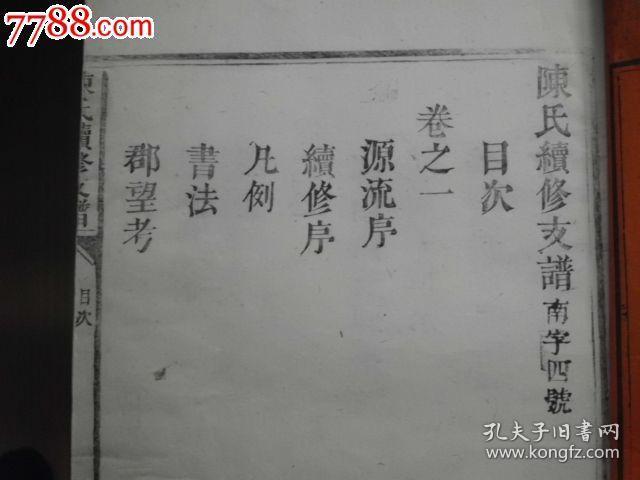 7788.com
陳氏續修支譜 南字四號
目次
卷之一
源流序
續修序
凡例
書法
郡望考
陳氏續修支譜
目次
孔夫子旧书网
www.kongfz.com